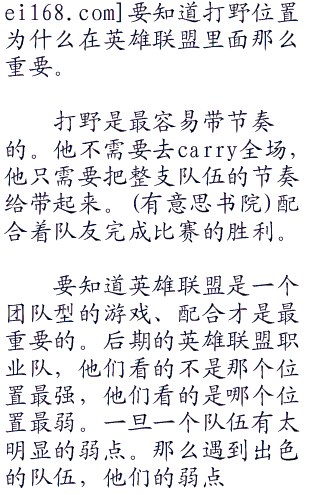 ei168.com]要知道打野位置
为什么在英雄联盟里面那么
重要。
打野是最容易带节奏
的。他不需要去carry全场,
他只需要把整支队伍的节奏
给带起来。(有意思书院)配
合着队友完成比赛的胜利。
要知道英雄联盟是一个
团队型的游戏、配合才是最
重要的。后期的英雄联盟职
业队，他们看的不是那个位
置最强，他们看的是哪个位
置最弱。一旦一个队伍有太
明显的弱点。那么遇到出色
的队伍，他们的弱点